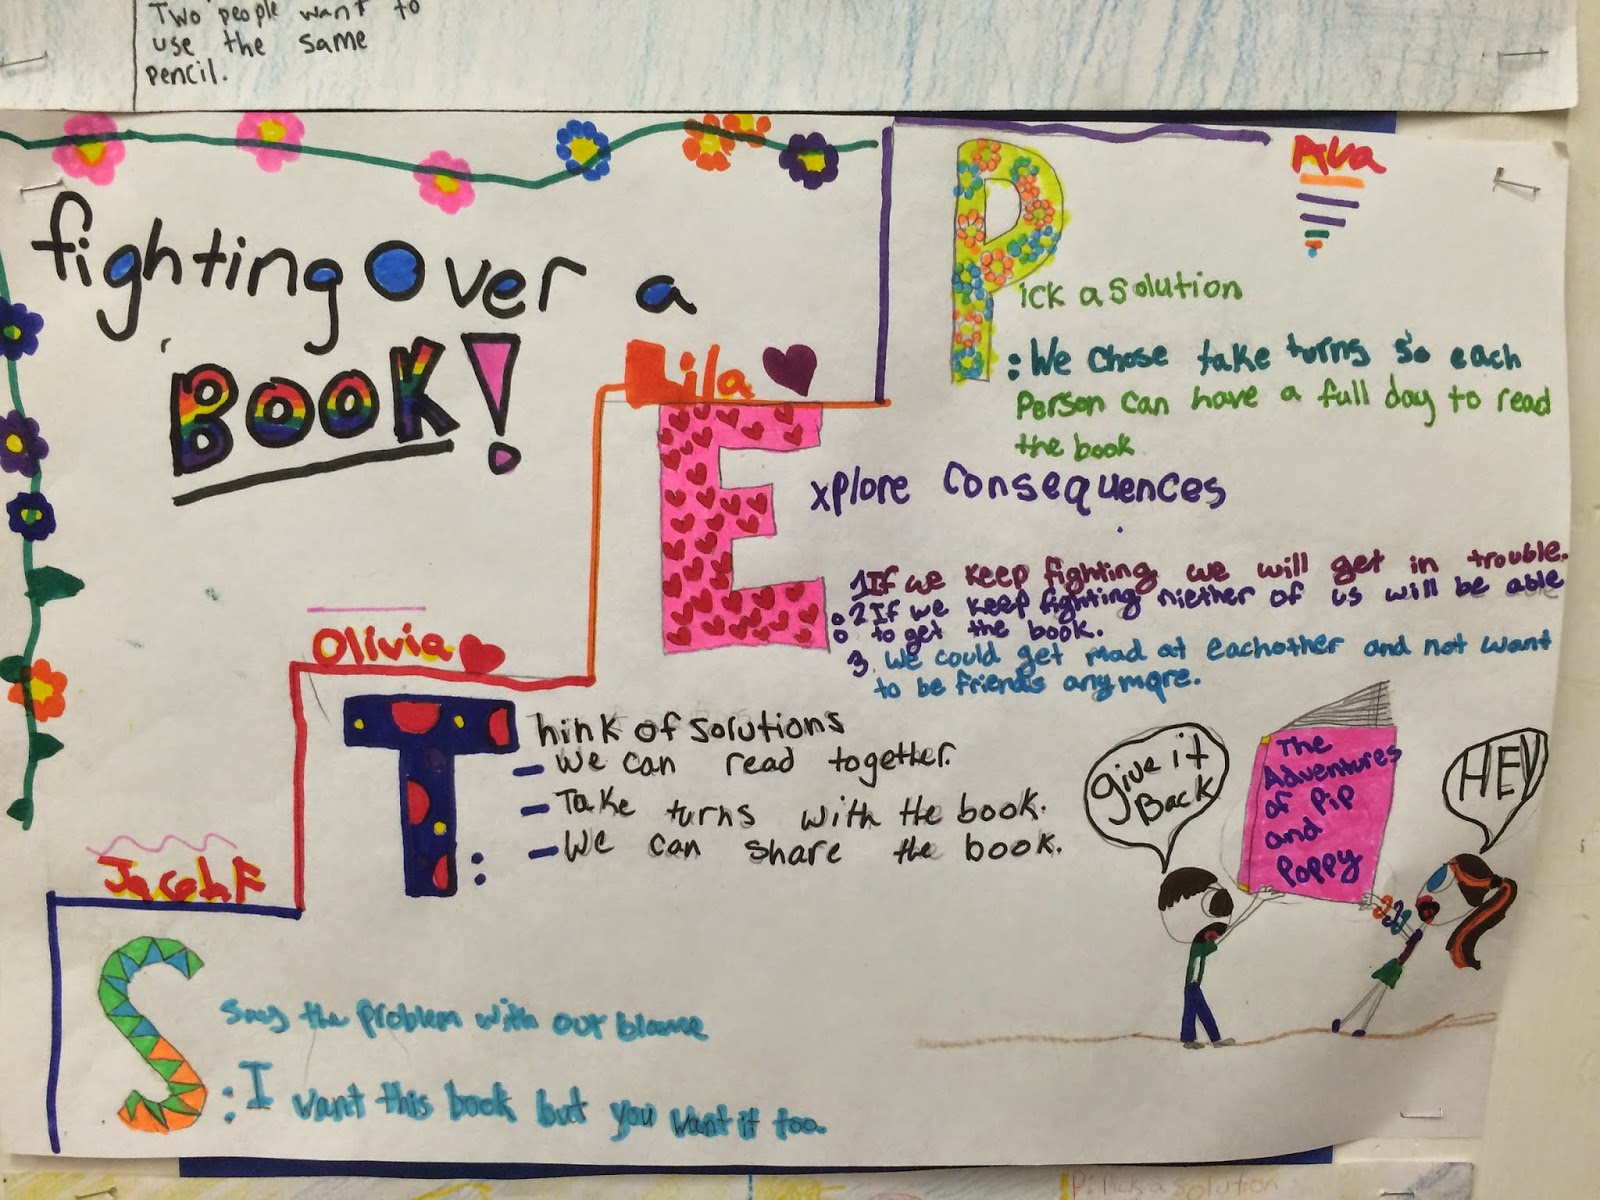 Two people want to
use the same
pencil.
fighting Over a
BOOK!
Ava
Pick a solution
: We chose take turns so each
Person can have a full day to read
the book
Lila
Explore Consequences
1 If we keep fighting we will get in trouble.
2 If we keep fighting niether of us will be able
to get the book.
3. We could get mad at eachother and not want
to be friends anymore.
Olivia
Think of solutions
- We can read together.
- Take turns with the book.
- We can share the book.
:
give it
Back
The
Adventures
of Pip
and
Poppy
HEY
Jacob F
Say the problem with out blame
: I want this book but you want it too.
Pick a solution